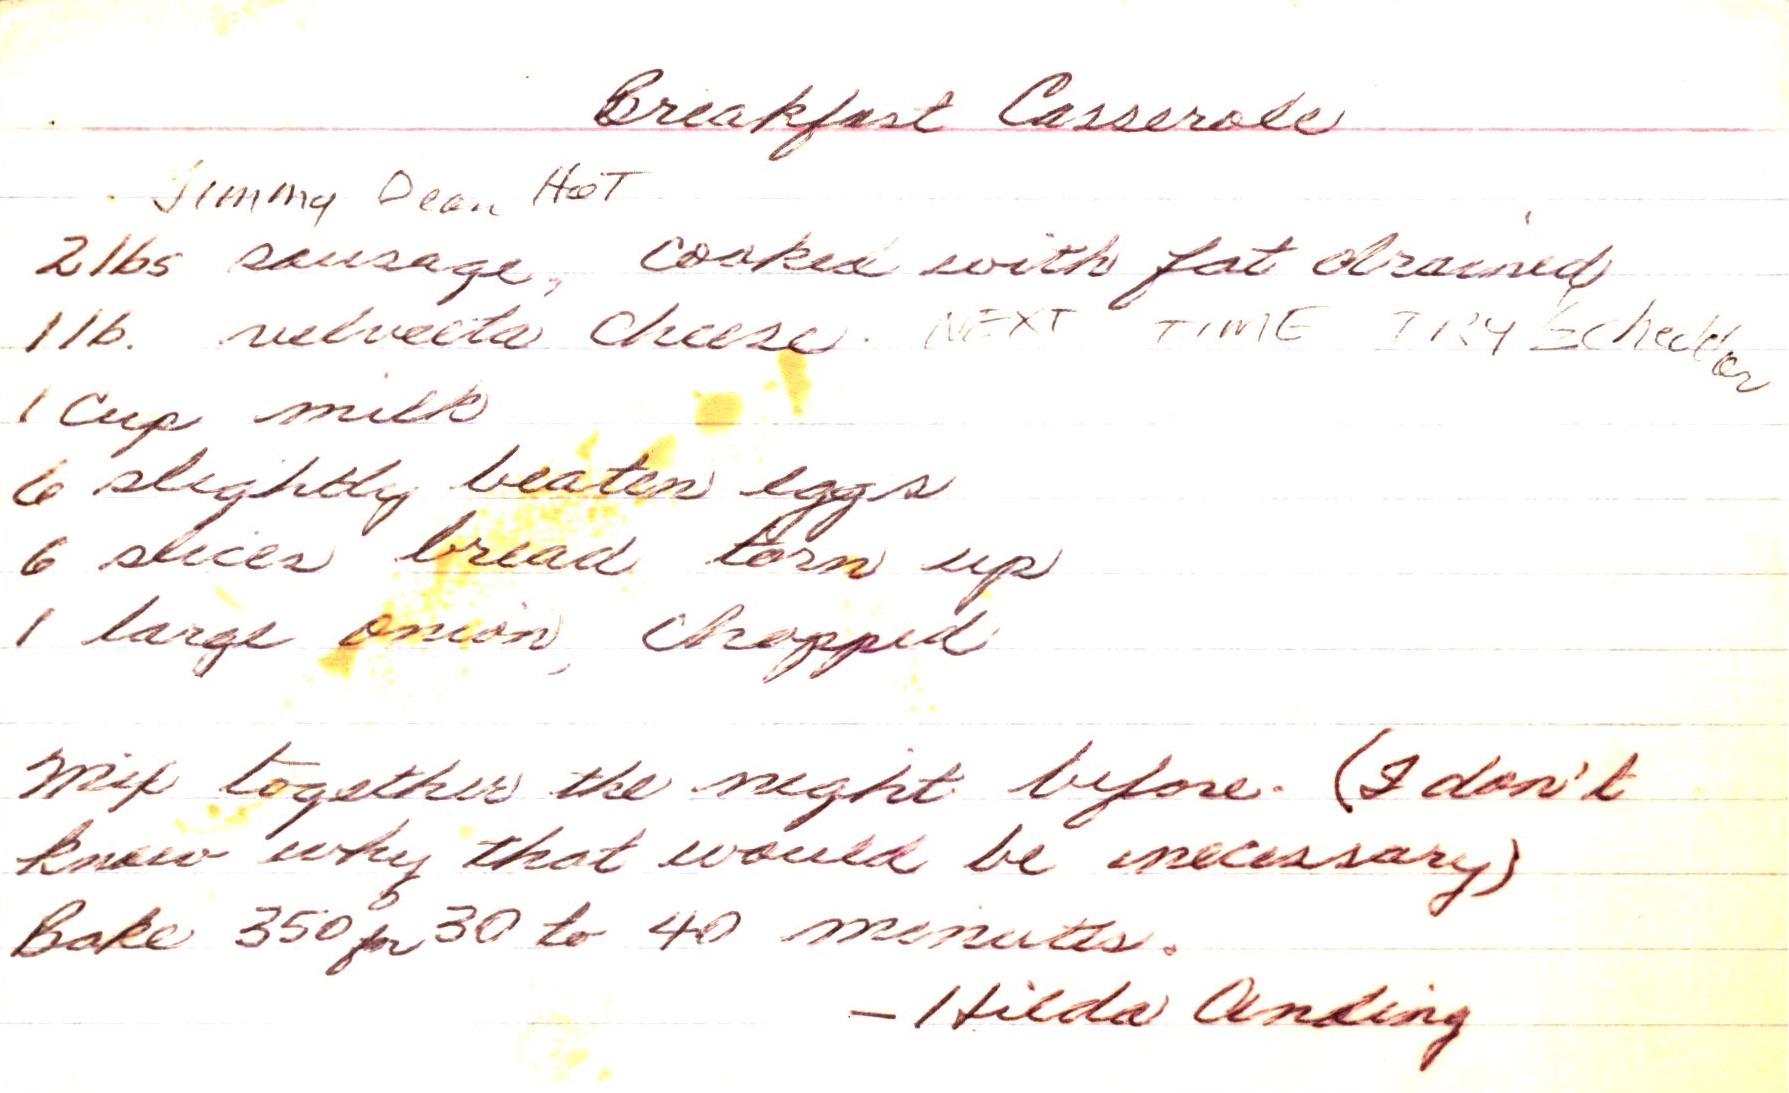 Breakfast Casserole
Jimmy Dean HOT
2 lbs sausage, cooked with fat drained
1 lb. velveeta cheese. NEXT TIME TRY ½ Cheddar
1 Cup milk
6 slightly beaten eggs
6 slices bread torn up
1 large onion, chopped
Mix together the night before. (I don't
know why that would be necessary)
Bake 350° for 30 to 40 minutes.
– Hilda Anding